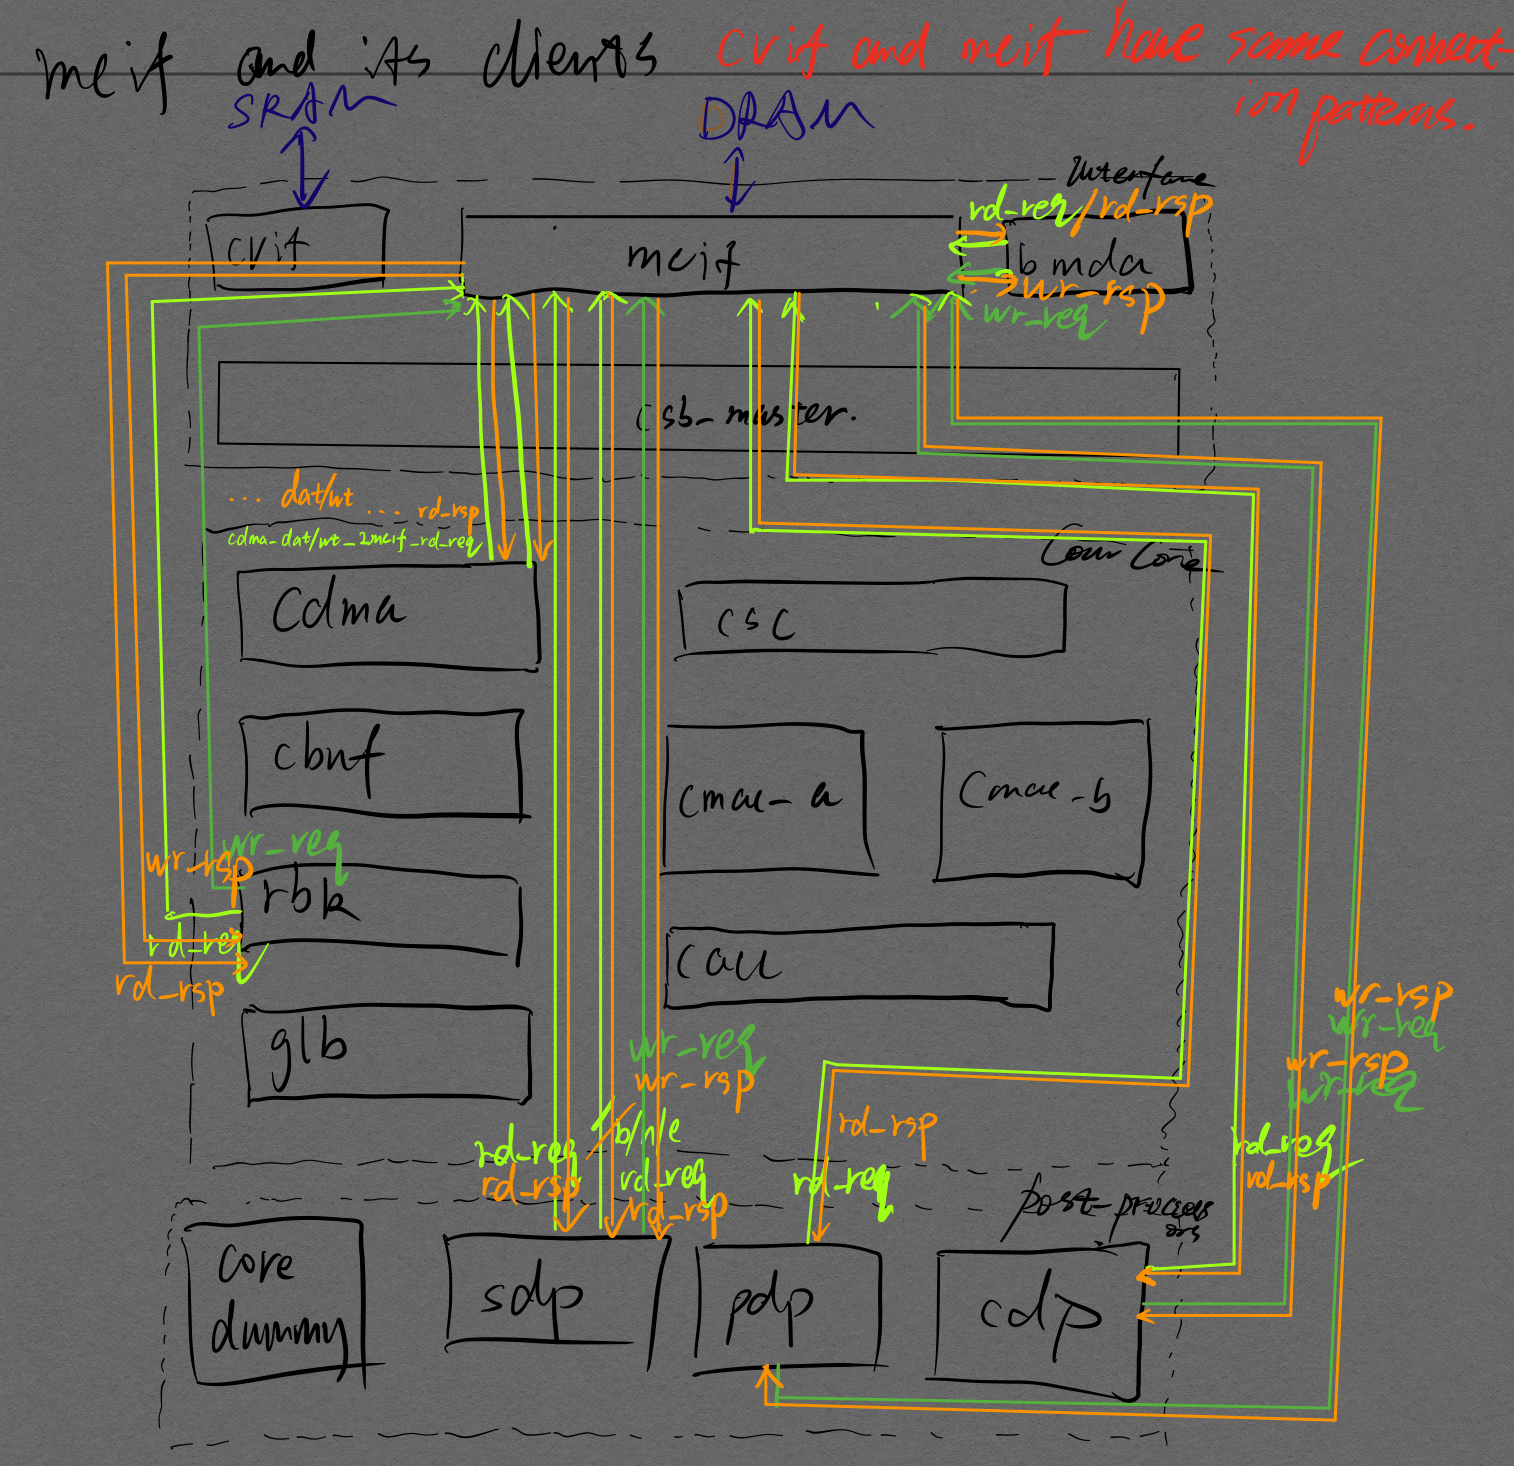 mcif and its clients
cvif and mcif have same connect-
ion patterns.
SRAM
DRAM
Interface
rd_req/rd_rsp
cvif
mcif
bmda
wr-rsp
wr_req
csb_master.
... dat/wt ... rd_rsp
cdma_dat/wt_2mcif_rd_req
Conv Core
Cdma
csc
cbuf
cmac-a
Cmac-b
wr_req
wr-rsp
rbk
rd_req
rd_rsp
cacc
glb
wr-rsp
wr-req
wr-req
wr-rsp
wr-rsp
wr-req
b/n/e
rd_rsp
rd_req
rd_rsp
rd_req
rd_rsp
rd_req
rd_req
rd_rsp
post-process
ors
core
dummy
sdp
pdp
cdp